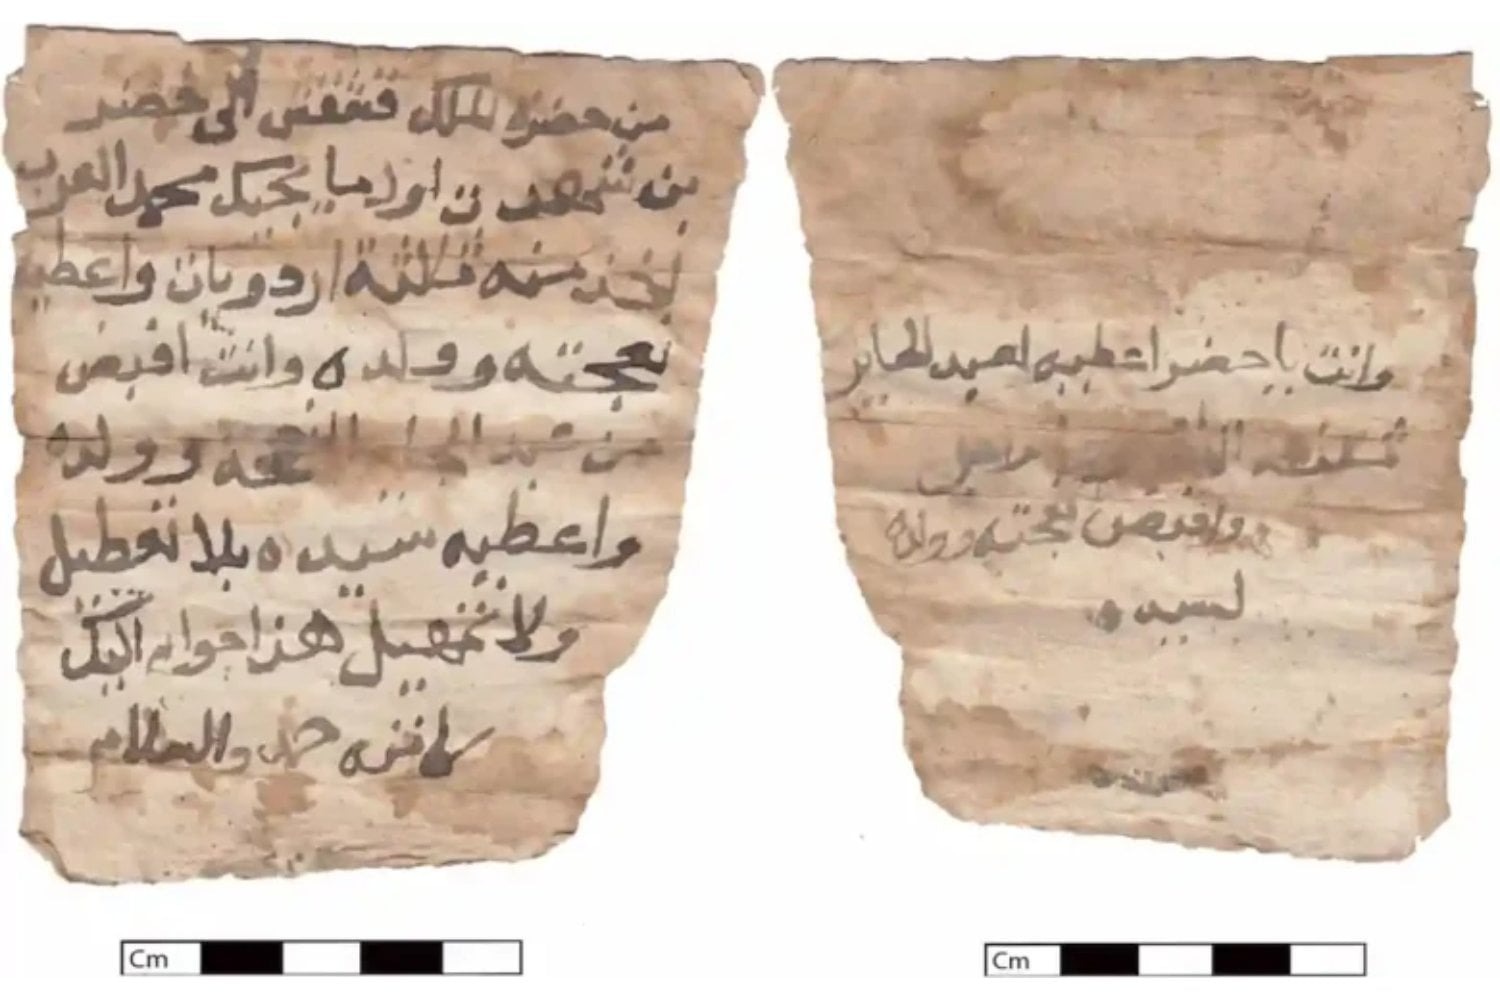 من حضرة الملك قشقش الى خضر
بن شهدت اول ما يجيك محمد العرب
تخذ منه ثلاثة اردويات واعطيه
نعجته وولده وانت اقبض
من عبد الجابر النعجة وولده
واعطيه سيده بلا تعطيل
ولا تمهيل هذا جوابي اليك
كاتبه حمد والسلام
وانت يا خضر اعطيه لعبد الجابر
ثلاثة
واقبض نعجته وولده
لسيده
Cm
Cm